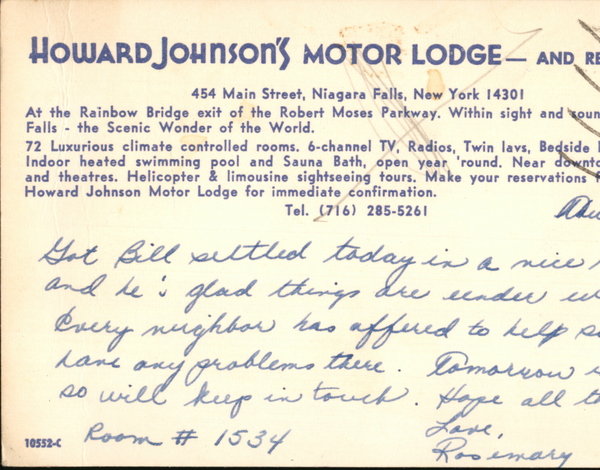 HOWARD JOHNSON'S MOTOR LODGE — AND RE
454 Main Street, Niagara Falls, New York 14301
At the Rainbow Bridge exit of the Robert Moses Parkway. Within sight and soun
Falls - the Scenic Wonder of the World.
72 Luxurious climate controlled rooms. 6-channel TV, Radios, Twin lavs, Bedside
Indoor heated swimming pool and Sauna Bath, open year 'round. Near downto
and theatres. Helicopter & limousine sightseeing tours. Make your reservations
Howard Johnson Motor Lodge for immediate confirmation.
Tel. (716) 285-5261
Got Bill settled today in a nice
and he's glad things are under
Every neighbor has offered to help
have any problems there. Tomorrow
so will keep in touch. Hope all
Love,
10552-C Room # 1534 Rosemary